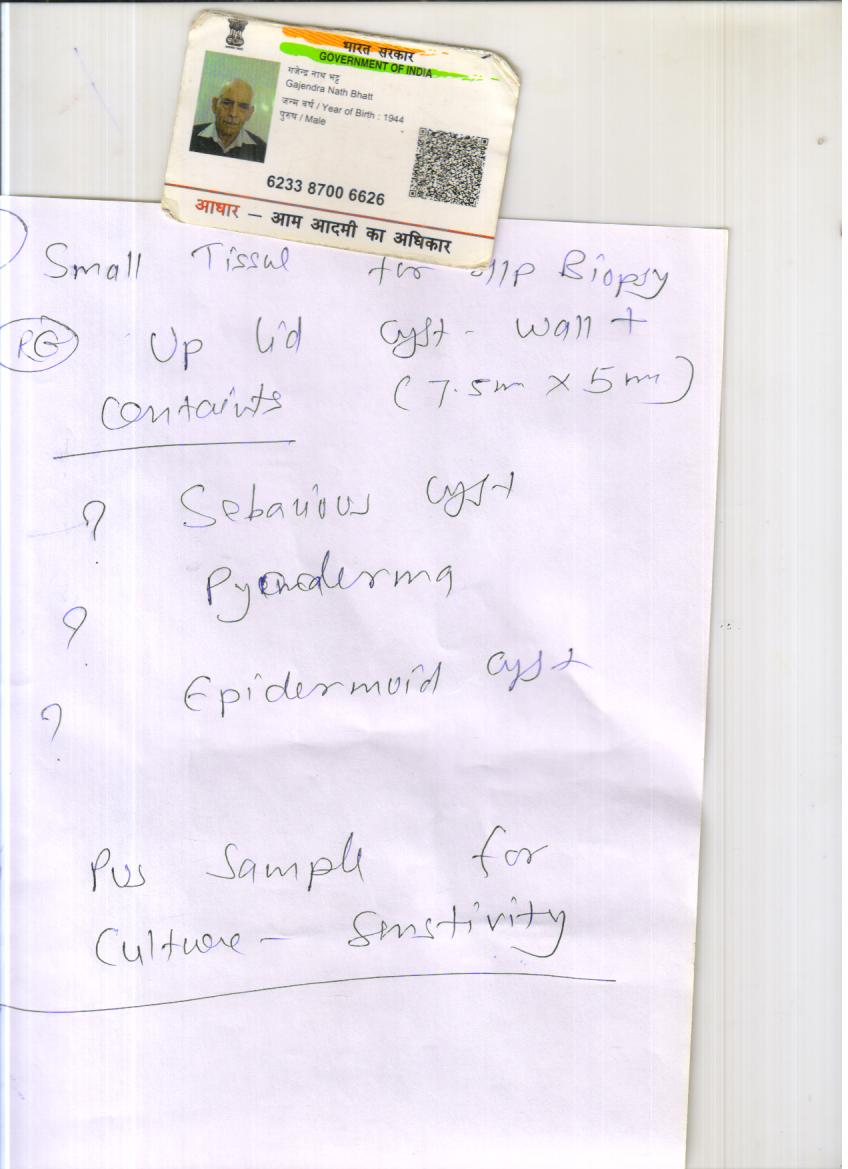 भारत सरकार
GOVERNMENT OF INDIA
गजेन्द्र नाथ भट्ट
Gajendra Nath Bhatt
जन्म वर्ष / Year of Birth : 1944
पुरुष / Male
6233 8700 6626
आधार – आम आदमी का अधिकार
Small Tissue for Biopsy
Up lid cyst - wall +
Containts (7.5m x 5 mm)
? Sebarious cyst
Pyoderma
?
Epidermoid cyst
?
Pus Sample for
Culture - Senstivity